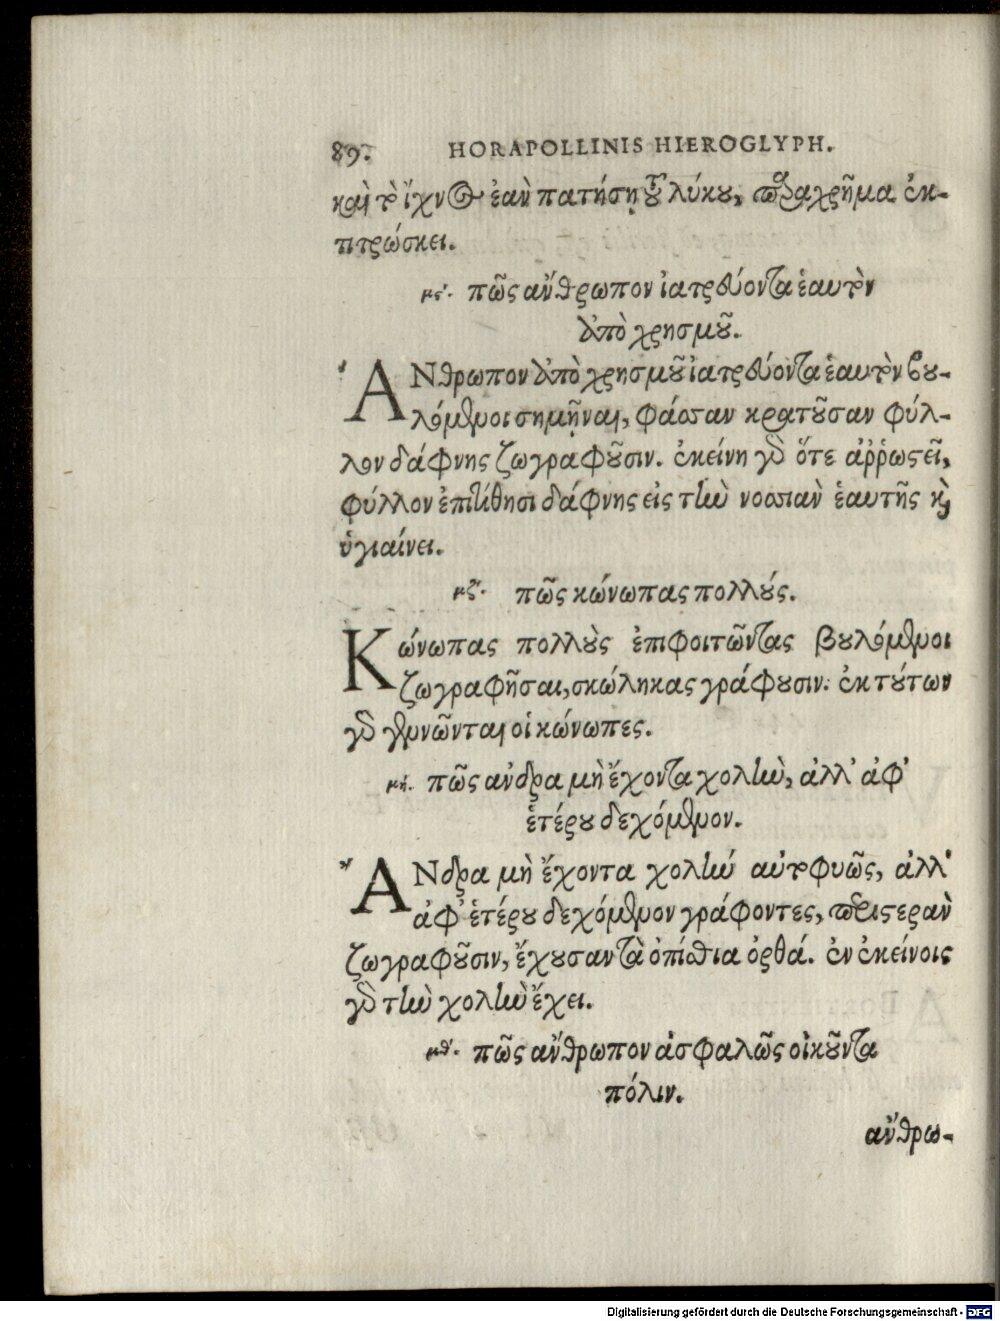 89. HORAPOLLINIS HIEROGLYPH.
καὶ τὸ ἴχνος ἐὰν πατήσῃ τοῦ λύκου, παραχρῆμα ἐκ-
τιτρώσκει.
μϛʹ. πῶς ἄνθρωπον ἰατρεύοντα ἑαυτὸν
ἀπὸ χρησμοῦ.
ἌΝθρωπον ἀπὸ χρησμοῦ ἰατρεύοντα ἑαυτὸν βου-
λόμενοι σημῆναι, φάσσαν κρατοῦσαν φύλ-
λον δάφνης ζωγραφοῦσιν. ἐκείνη γὰρ ὅτε ἀῤῥωστεῖ,
φύλλον ἐπιτίθησι δάφνης εἰς τὴν νοσσιὰν ἑαυτῆς καὶ
ὑγιαίνει.
μζʹ. πῶς κώνωπας πολλούς.
Κώνωπας πολλοὺς ἐπιφοιτῶντας βουλόμενοι
ζωγραφῆσαι, σκώληκας γράφουσιν. ἐκ τούτων
γὰρ γεννῶνται οἱ κώνωπες.
μηʹ. πῶς ἄνδρα μὴ ἔχοντα χολὴν, ἀλλ' ἀφ'
ἑτέρου δεχόμενον.
ἌΝδρα μὴ ἔχοντα χολὴν αὐτοφυῶς, ἀλλ'
ἀφ' ἑτέρου δεχόμενον γράφοντες, περιστερὰν
ζωγραφοῦσιν, ἔχουσαν τὰ ὀπίσθια ὀρθά. ἐν ἐκείνοις
γὰρ τὴν χολὴν ἔχει.
μθʹ. πῶς ἄνθρωπον ἀσφαλῶς οἰκοῦντα
πόλιν.
ἄνθρω-
Digitalisierung gefördert durch die Deutsche Forschungsgemeinschaft - DFG